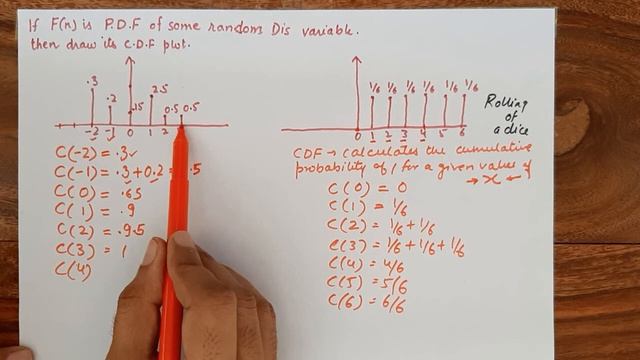 If F(n) is P.D.F of some random Dis variable.
then draw its C.D.F plot.
.3
.2
.15
2.5
0.5
0.5
-2 -1 0 1 2
C(-2) = .3
C(-1) = .3+0.2 = .5
C(0) = .65
C(1) = .9
C(2) = .95
C(3) = 1
C(4)
1/6 1/6 1/6 1/6 1/6 1/6
0 1 2 3 4 5 6
Rolling
of
a dice
CDF → Calculates the cumulative
probability of f for a given value of
→ x ←
C(0) = 0
C(1) = 1/6
C(2) = 1/6 + 1/6
C(3) = 1/6 + 1/6 + 1/6
C(4) = 4/6
C(5) = 5/6
C(6) = 6/6